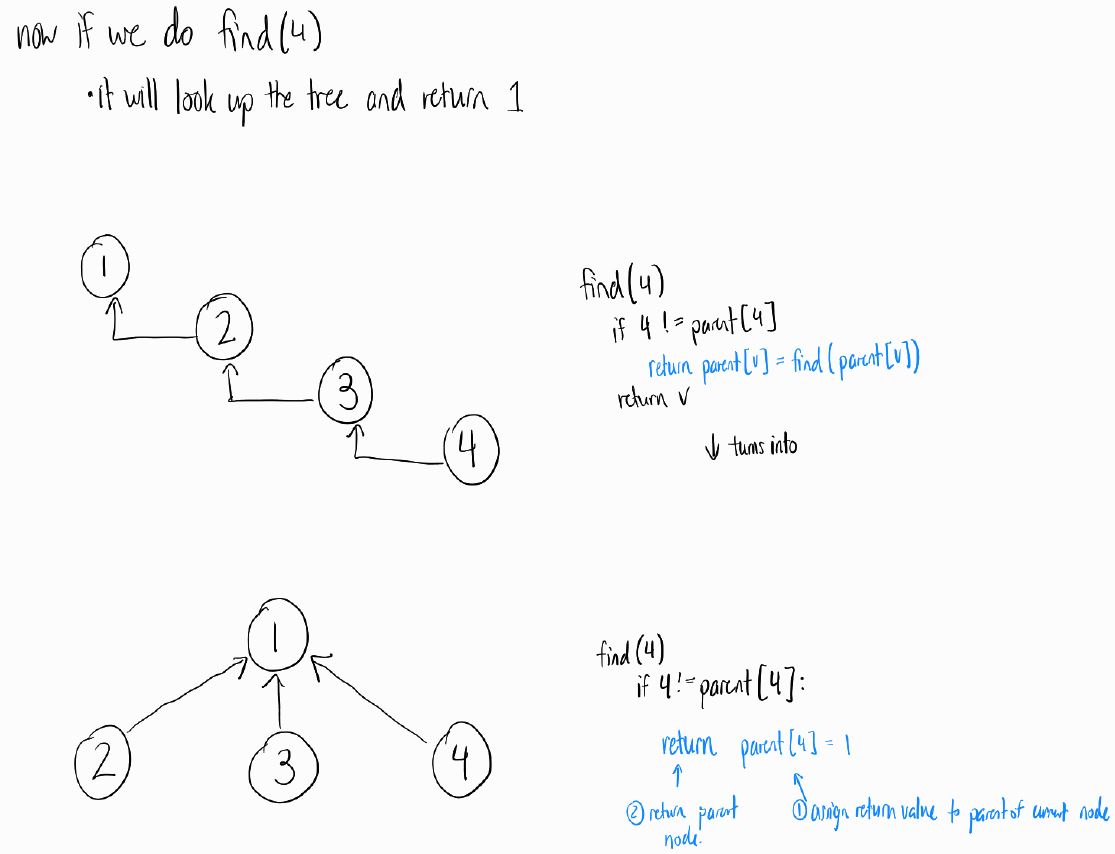 now if we do find(4)
• it will look up the tree and return 1
1
2
3
4
find(4)
if 4 != parent[4]
return parent[v] = find(parent[v])
return v
↓ turns into
1
2
3
4
find(4)
if 4 != parent[4]:
return parent[4] = 1
② return parent
node.
① assign return value to parent of current node